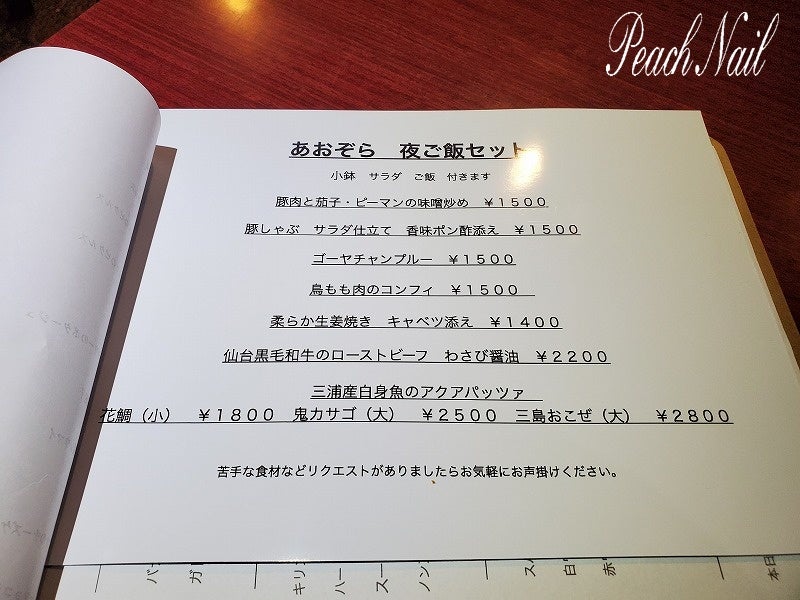 Peach Nail
あおぞら　夜ご飯セット
小鉢　サラダ　ご飯　付きます
豚肉と茄子・ピーマンの味噌炒め　￥１５００
豚しゃぶ　サラダ仕立て　香味ポン酢添え　￥１５００
ゴーヤチャンプルー　￥１５００
鳥もも肉のコンフィ　￥１５００
柔らか生姜焼き　キャベツ添え　￥１４００
仙台黒毛和牛のローストビーフ　わさび醤油　￥２２００
三浦産白身魚のアクアパッツァ
花鯛（小）　￥１８００　鬼カサゴ（大）　￥２５００　三島おこぜ（大）　￥２８００
苦手な食材などリクエストがありましたらお気軽にお声掛けください。